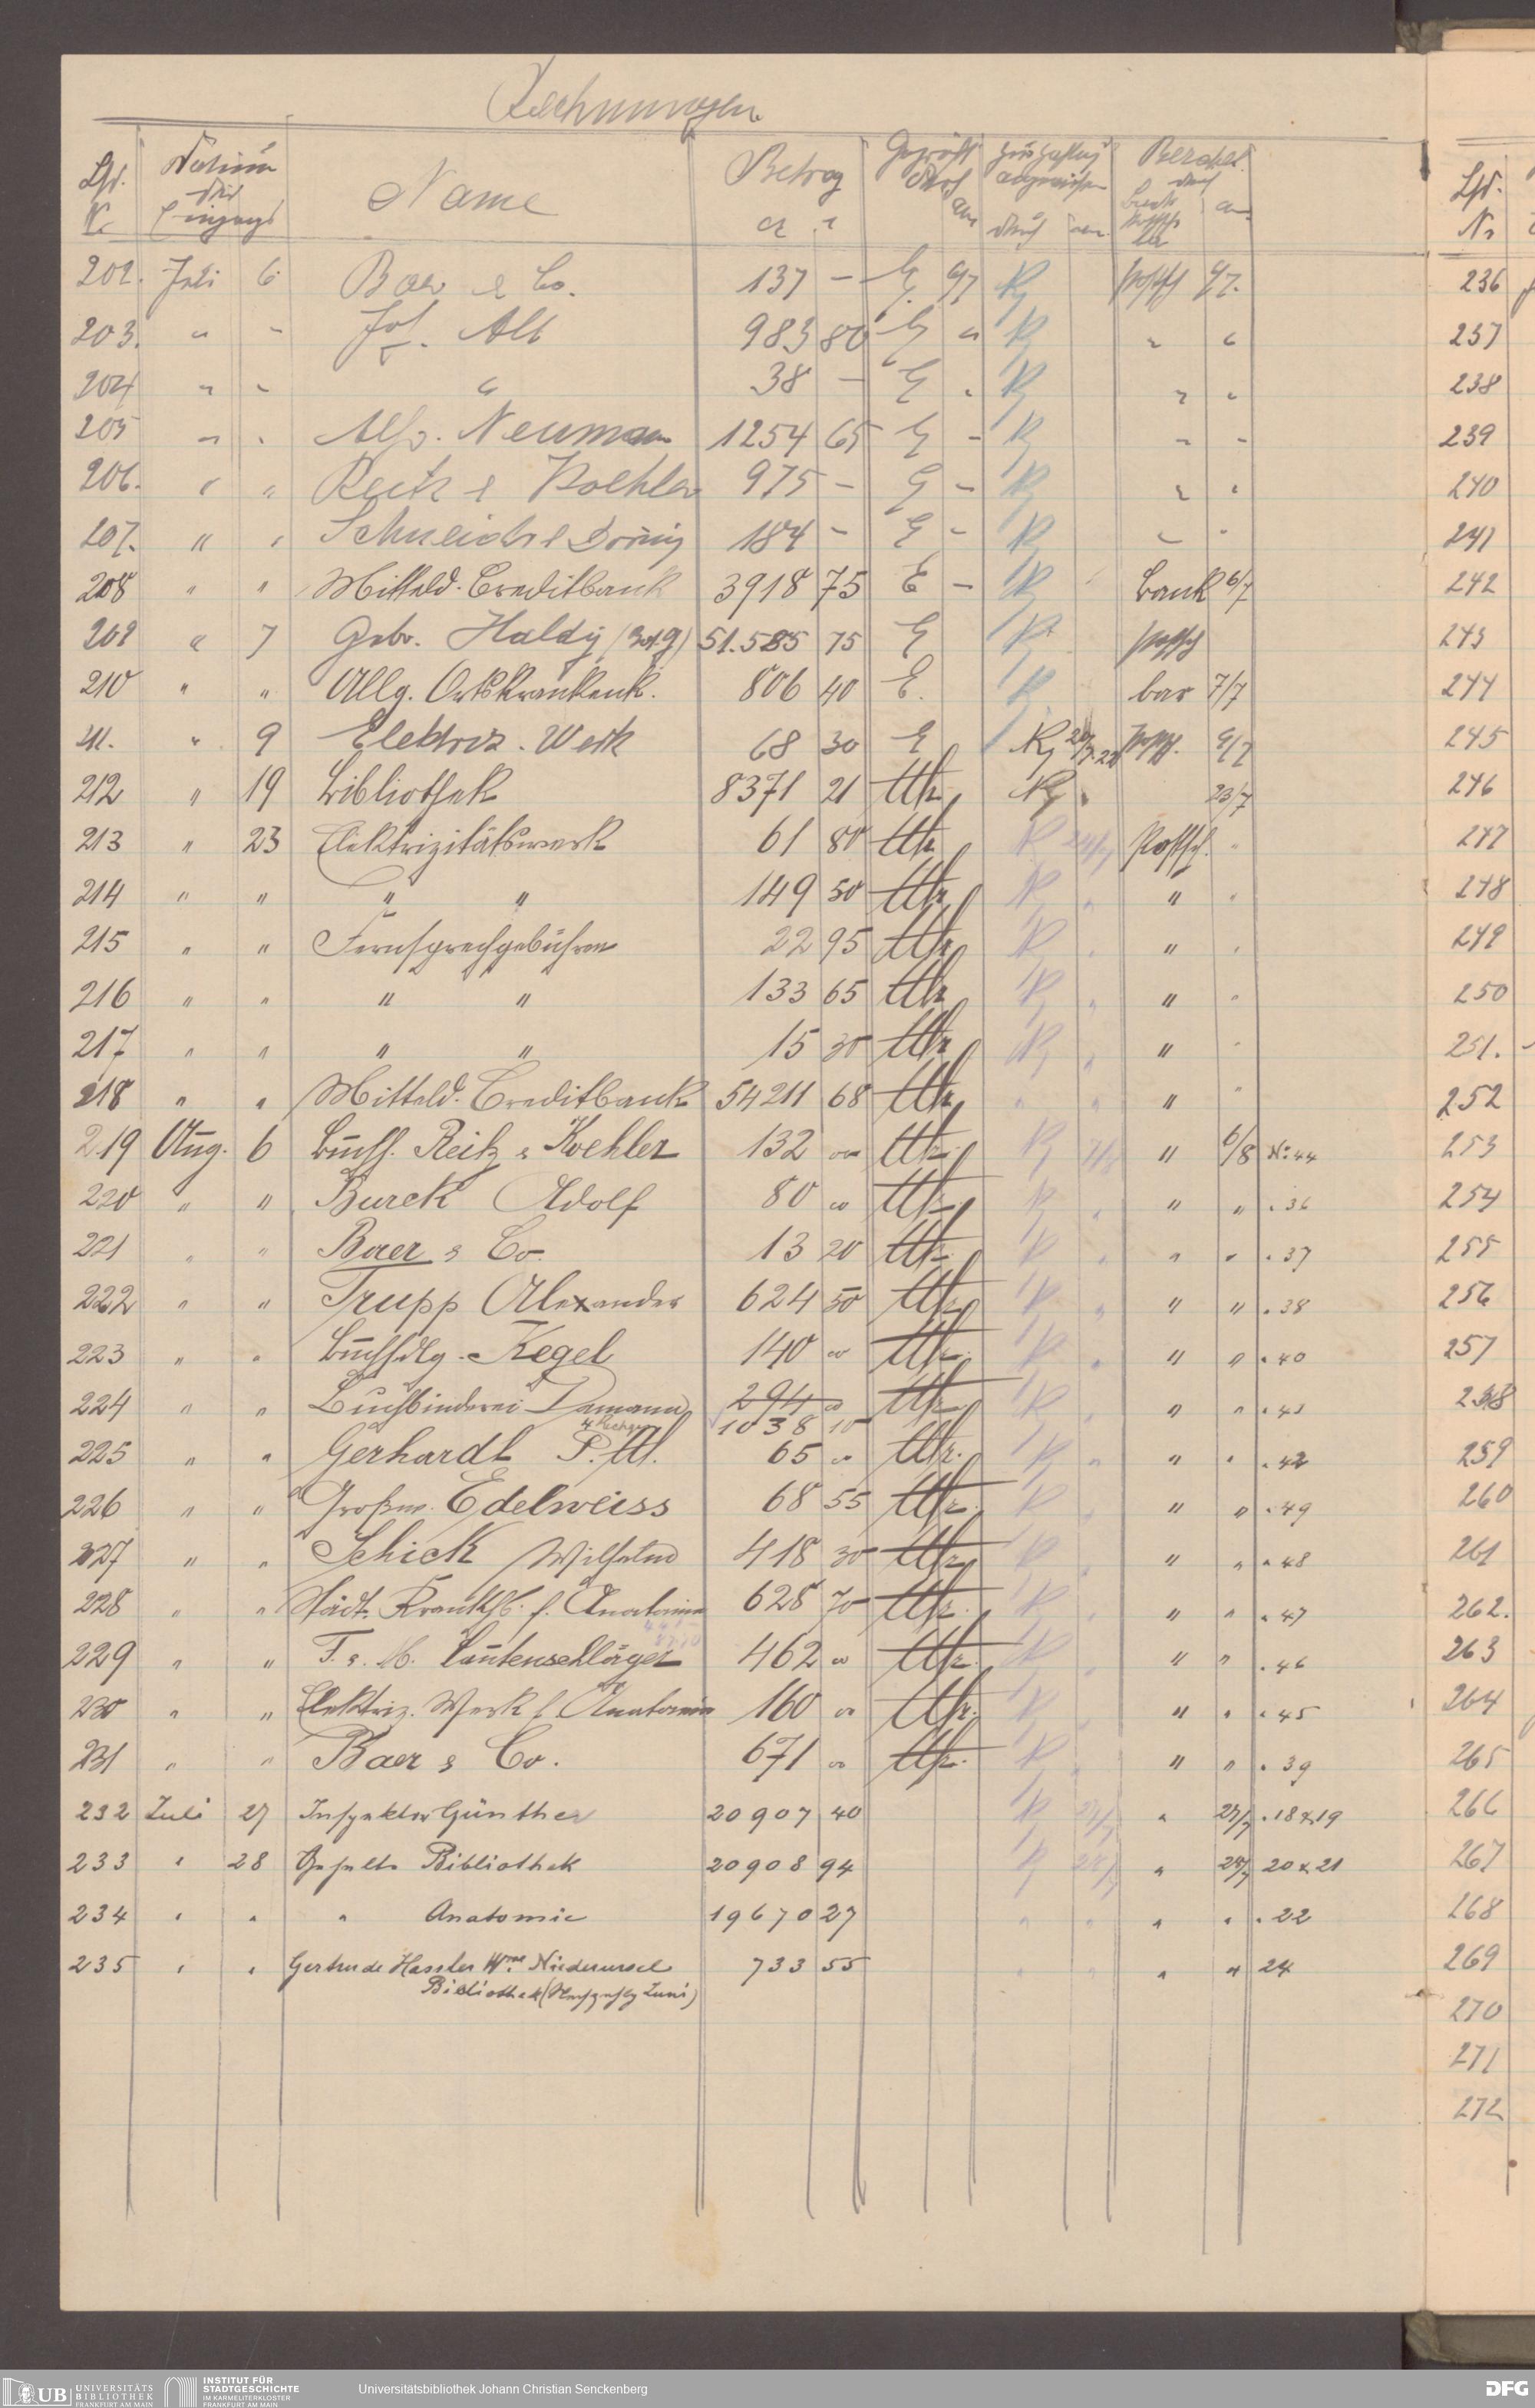 Rechnungen
Lfd. Nr. Datum des Eingangs Name Betrag Geprüft durch am Zur Zahlung angewiesen durch am Bezahlt durch am
202. Juli 6 Baer & Co. 137 – E 6/7 R Postsch 6/7.
203. " " Jos. Alt 983 80 E " R " "
204 " " " 38 – E " R " "
205 " " Alfr. Neumann 1254 65 E – R " "
206. " " Reitz & Koehler 975 – E – R " "
207. " " Schneider & Dörnig 184 – E – R " "
208 " " Mitteld. Creditbank 3918 75 E – R Bank 6/7
209 " 7 Gebr. Haldÿ 51.585 75 E R Postsch
210 " " Allg. Ortskrankenk. 806 40 E. R bar 7/7
211. " 9 Elektriz. Werk 68 30 E R Postsch. 9/7
212 " 19 Bibliothek 8371 21 R " 23/7
213 " 23 Elektrizitätswerk 61 80 R 24/7 Postsch. "
214 " " " " 149 50 R " " "
215 " " Fernsprechgebühren 22 95 R " " "
216 " " " " 133 65 R " " "
217 " " " " 15 30 R " " "
218 " " Mitteld. Creditbank 54211 68 " " " "
219 Aug. 6 Buchh. Reitz & Koehler 132 00 R 7/8 " 6/8 No 44
220 " " Burck Adolf 80 00 R " " " " 36
221 " " Baer & Co. 13 20 R " " " " 37
222 " " Trupp Alexander 624 50 R " " " " 38
223 " " Buchhdlg. Kegel 140 00 R " " " " 40
224 " " Buchbinderei Damann 294 00 R " " " " 43
4 Rechng 1038 10
225 " " Gerhardt P. W. 65 00 R " " " " 42
226 " " Großw. Edelweiss 68 55 R " " " " 49
227 " " Schick Wilhelm 418 30 R " " " " 48
228 " " Städt. Krankhs. f. Anatomie 628 70 R " " " " 47
229 " " F. & M. Lautenschläger 462 00 R " " " " 46
230 " " Elektriz. Werk f. Anatomie 160 00 R " " " " 45
231 " " Baer & Co. 671 00 R " " " " 39
232 Juli 27 Inspektor Günther 20 907 40 R 27/7 " 27/7 " 18 & 19
233 " 28 Gehälter Bibliothek 20 908 94 R 28/7 " 28/7 20 & 21
234 " " " Anatomie 19670 27 " " " " " 22
235 " " Gertrude Hassler Wwe Niederursel 733 55 " " " " 24
Bibliothek (Nachzahlg Juni)
Lfd. Nr
236
237
238
239
240
241
242
243
244
245
246
247
248
249
250
251.
252
253
254
255
256
257
258
259
260
261
262.
263
264
265
266
267
268
269
270
271
272
UB UNIVERSITÄTS BIBLIOTHEK FRANKFURT AM MAIN
INSTITUT FÜR STADTGESCHICHTE IM KARMELITERKLOSTER FRANKFURT AM MAIN
Universitätsbibliothek Johann Christian Senckenberg
DFG